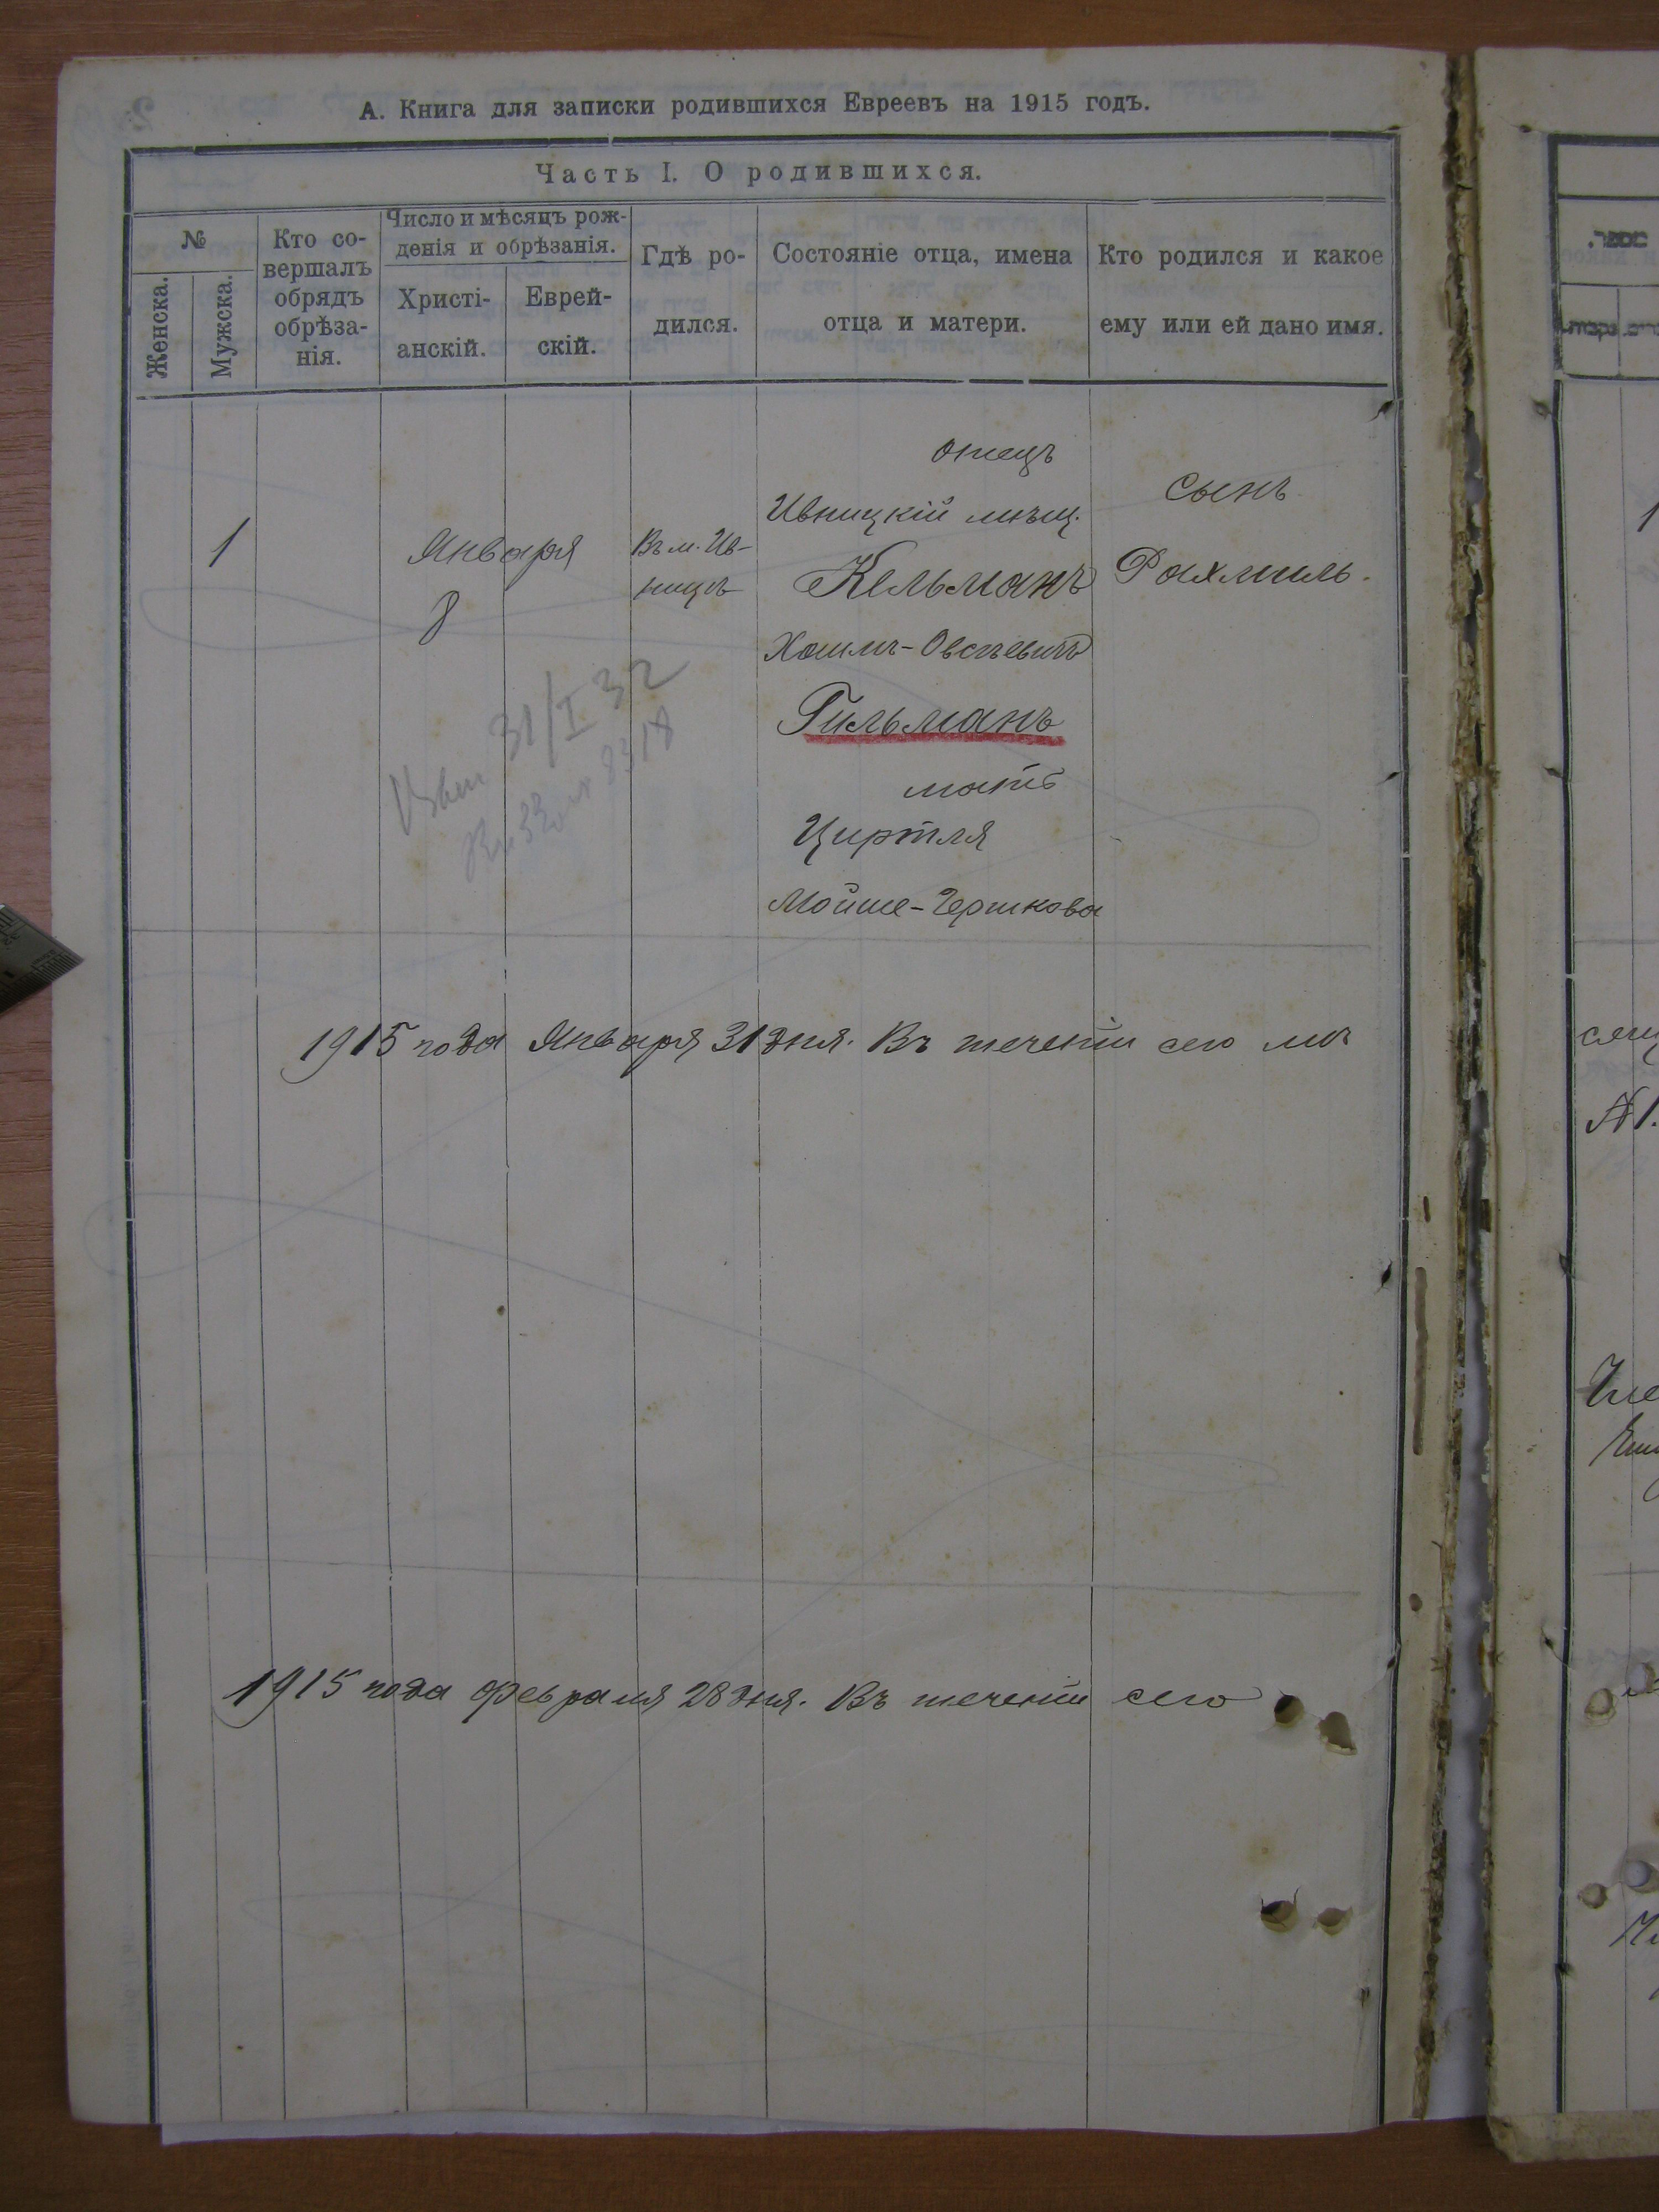 А. Книга для записки родившихся Евреевъ на 1915 годъ.
Часть I. О родившихся.
№
Женска.
Мужска.
Кто со-
вершалъ
обрядъ
обрѣза-
нія.
Число и мѣсяцъ рож-
денія и обрѣзанія.
Христі-
анскій.
Еврей-
скій.
Гдѣ ро-
дился.
Состояніе отца, имена
отца и матери.
Кто родился и какое
ему или ей дано имя.
1
Января
8
Въ м. Ив-
ницѣ
отецъ
Ивницкій мѣщ.
Кельманъ
Хаимъ-Овсѣевичъ
Гильманъ
мать
Циртля
Мойше-Гершкова
сынъ
Рахмиль.
31/I 32
1915 года Января 31 дня. Въ теченіи сего мѣ
1915 года февраля 28 дня. Въ теченіи сего
1
сяц
№ 1.